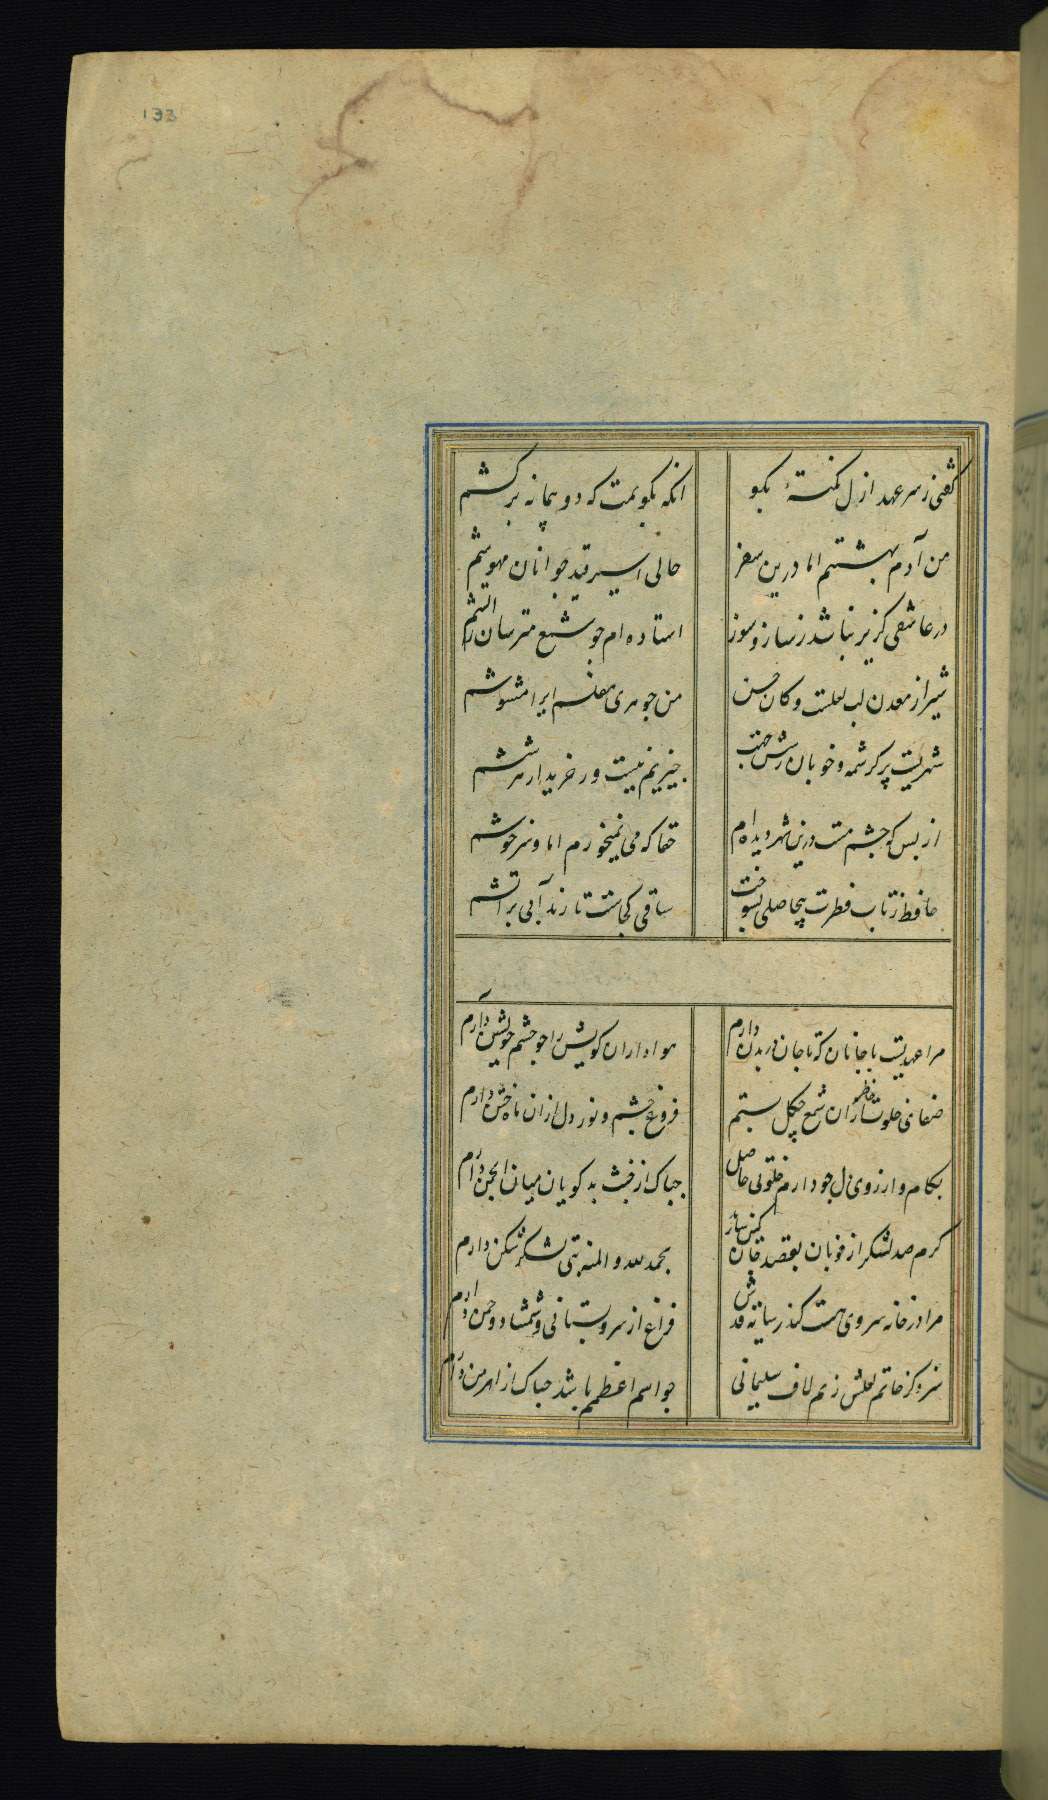 133
گفتی ز سر عهد ازل نکتهٔ بگو
انکه بگویمت که دو پیمانه برکشم
من آدم بهشتیم اما درین سفر
حالی اسیر قید جوانان مهوشم
در عاشقی گزیر نباشد ز ساز و سوز
استاده‌ام چو شمع مترسان ز آتشم
شیراز معدن لب لعلست و کان حسن
من جوهری مفلسم ایرا مشوشم
شهریست پر کرشمه و خوبان ز شش جهت
چیزیم نیست ور نه خریدار هر ششم
از بس که چشم مست درین شهر دیده‌ام
حقا که می نمیخورم اما و سر خوشم
حافظ ز تاب فطرت بیحاصلی بسوخت
ساقی کجاست تا زند آبی بر آتشم
مرا عهدیست با جانان که تا جان در بدن دارم
هواداران کویش را چو جان خویشتن دارم
صفای خلوت خاطر از ان شمع چگل بستم
فروغ چشم و نور دل از ان ماه ختن دارم
بکام و ارزوی دل چو دارم خلوتی حاصل
چه باک از خبث بدگویان میان انجمن دارم
گرم صد لشکر از خوبان بقصد جان کمین سازند
بحمد لله و المنه بتی لشکر شکن دارم
مرا در خانه سروی هست کندر سایهٔ قدش
فراغ از سرو بستانی و شمشاد و چمن دارم
سزد کز خاتم لعلش زنم لاف سلیمانی
چو اسم اعظمم باشد چه باک از اهرمن دارم